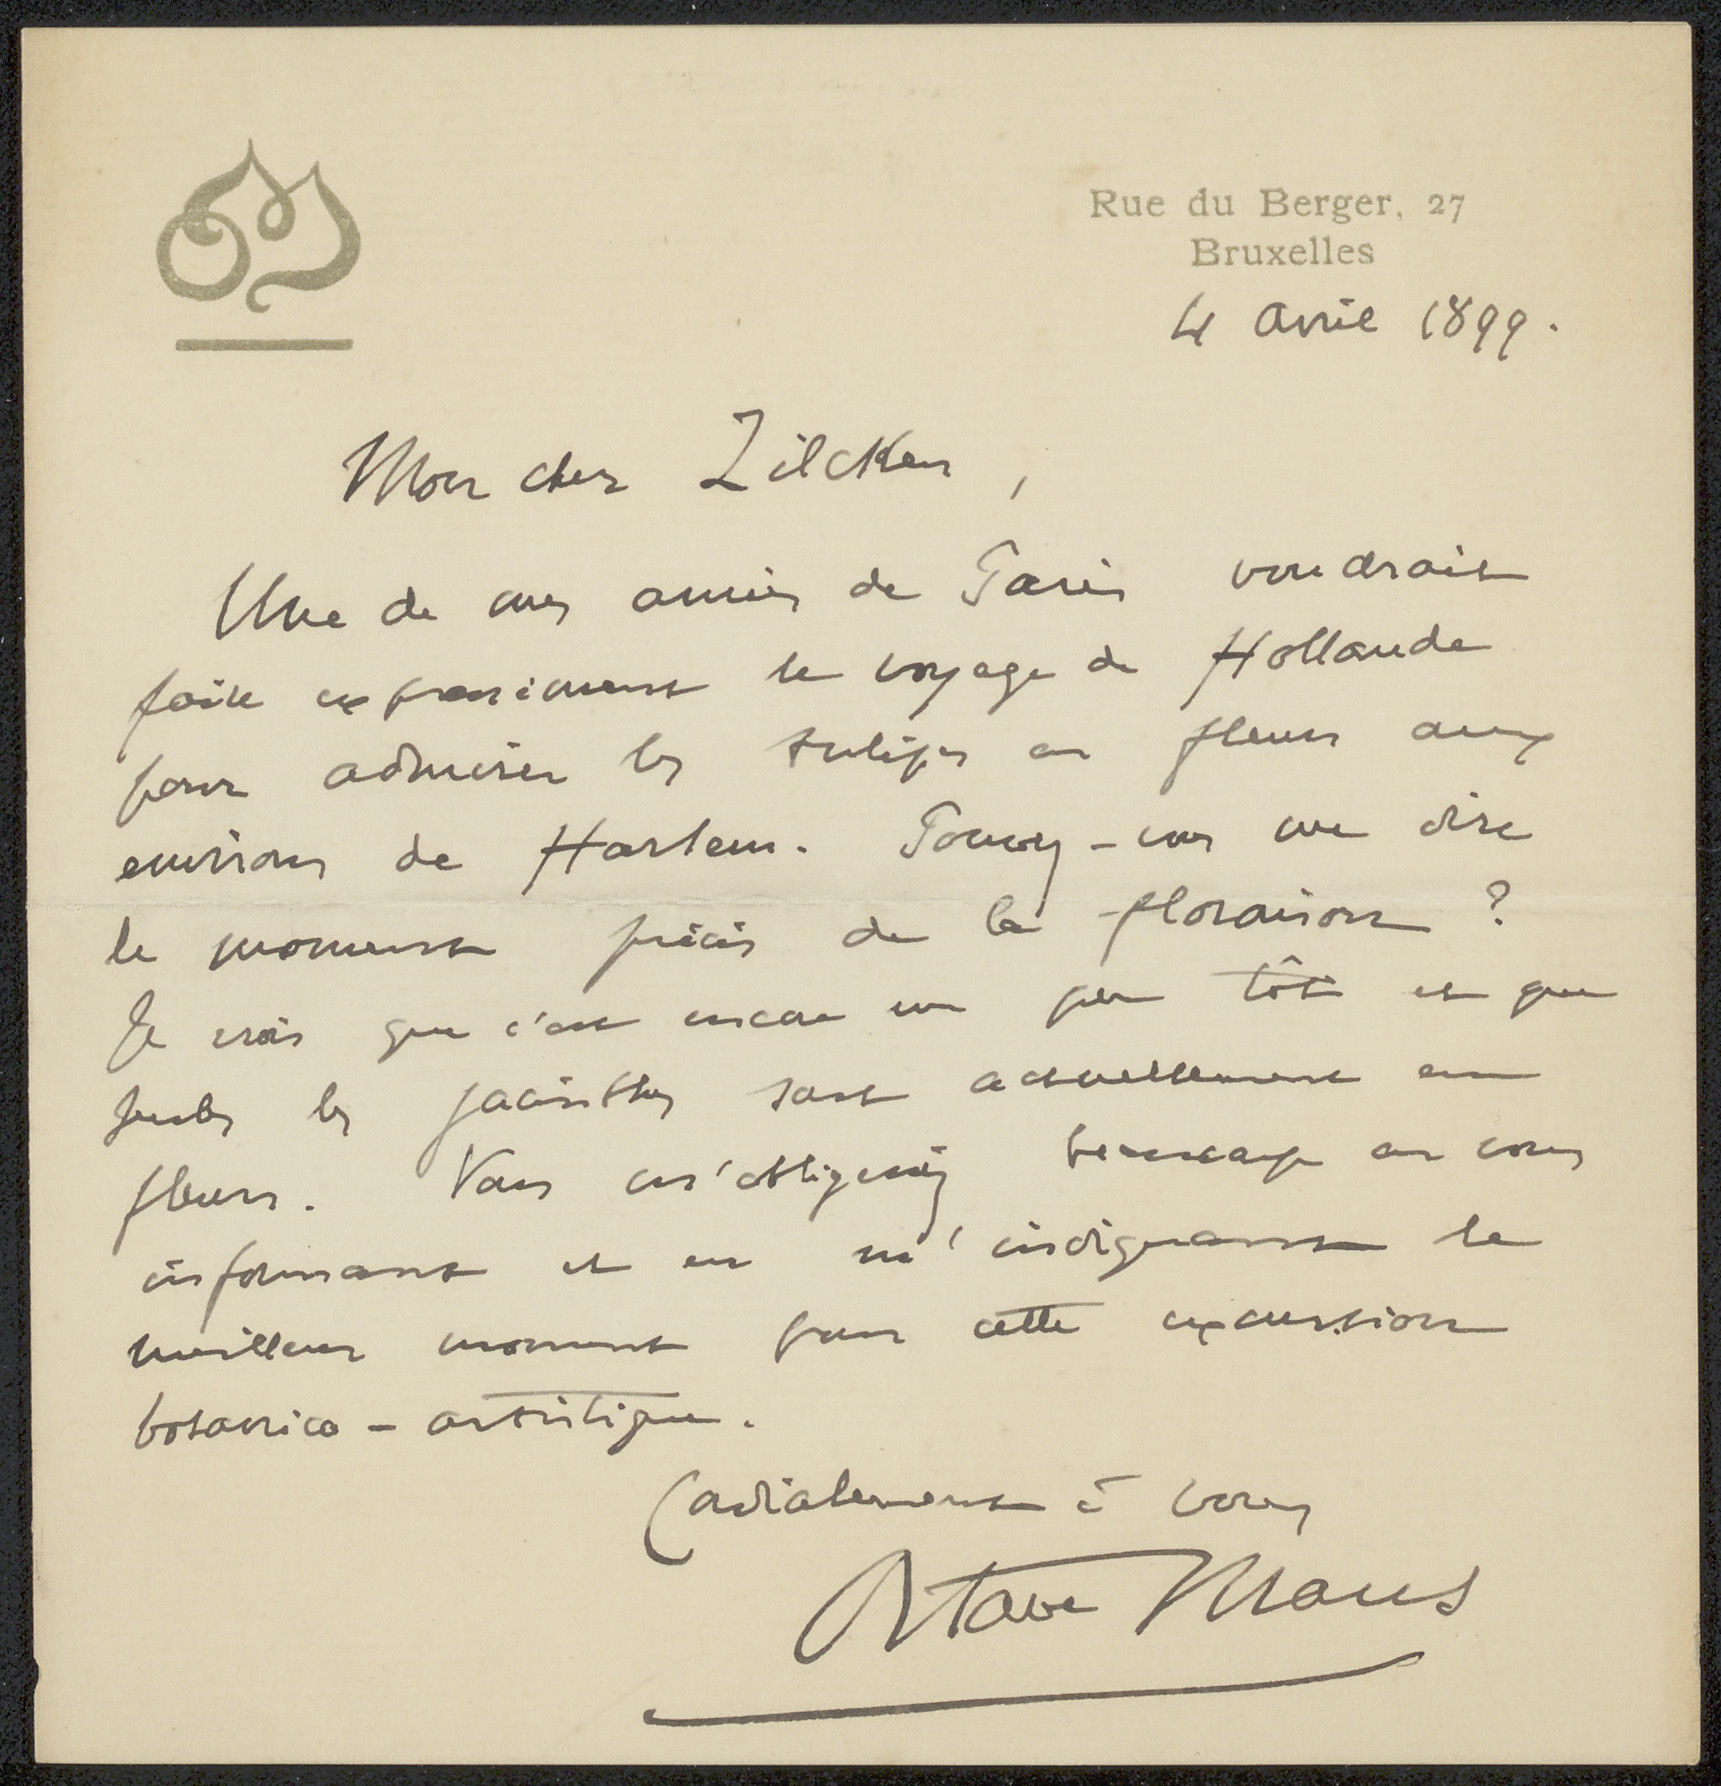 Rue du Berger, 27
Bruxelles
4 avril 1899.
Mon cher Zilcken,
Une de mes amies de Paris voudrait
faire expressément le voyage de Hollande
pour admirer les tulipes en fleurs aux
environs de Harlem. Pouvez-vous me dire
le moment précis de la floraison ?
Je crois que c'est encore un peu tôt et que
seules les jacinthes sont actuellement en
fleurs. Vous m'obligeriez beaucoup en vous
informant et en m'indiquant le
meilleur moment pour cette excursion
botanico-artistique.
Cordialement à vous
Octave Maus